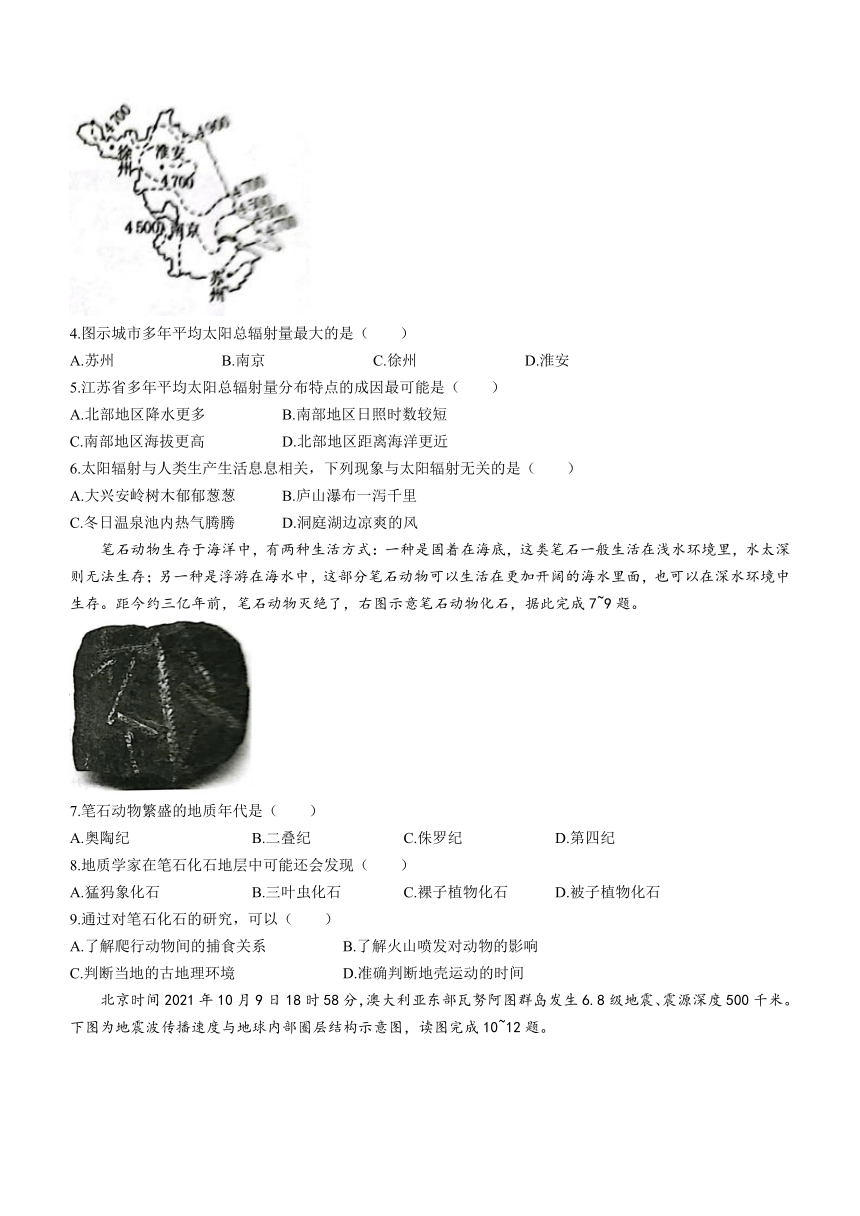 4700
徐州
淮安
4900
4700
4700
4500
南京
苏州
4.图示城市多年平均太阳总辐射量最大的是（　　）
A.苏州 B.南京 C.徐州 D.淮安
5.江苏省多年平均太阳总辐射量分布特点的成因最可能是（　　）
A.北部地区降水更多 B.南部地区日照时数较短
C.南部地区海拔更高 D.北部地区距离海洋更近
6.太阳辐射与人类生产生活息息相关，下列现象与太阳辐射无关的是（　　）
A.大兴安岭树木郁郁葱葱 B.庐山瀑布一泻千里
C.冬日温泉池内热气腾腾 D.洞庭湖边凉爽的风
笔石动物生存于海洋中，有两种生活方式：一种是固着在海底，这类笔石一般生活在浅水环境里，水太深
则无法生存；另一种是浮游在海水中，这部分笔石动物可以生活在更加开阔的海水里面，也可以在深水环境中
生存。距今约三亿年前，笔石动物灭绝了，右图示意笔石动物化石，据此完成7~9题。
7.笔石动物繁盛的地质年代是（　　）
A.奥陶纪 B.二叠纪 C.侏罗纪 D.第四纪
8.地质学家在笔石化石地层中可能还会发现（　　）
A.猛犸象化石 B.三叶虫化石 C.裸子植物化石 D.被子植物化石
9.通过对笔石化石的研究，可以（　　）
A.了解爬行动物间的捕食关系 B.了解火山喷发对动物的影响
C.判断当地的古地理环境 D.准确判断地壳运动的时间
北京时间2021年10月9日18时58分，澳大利亚东部瓦努阿图群岛发生6.8级地震、震源深度500千米。
下图为地震波传播速度与地球内部圈层结构示意图，读图完成10~12题。